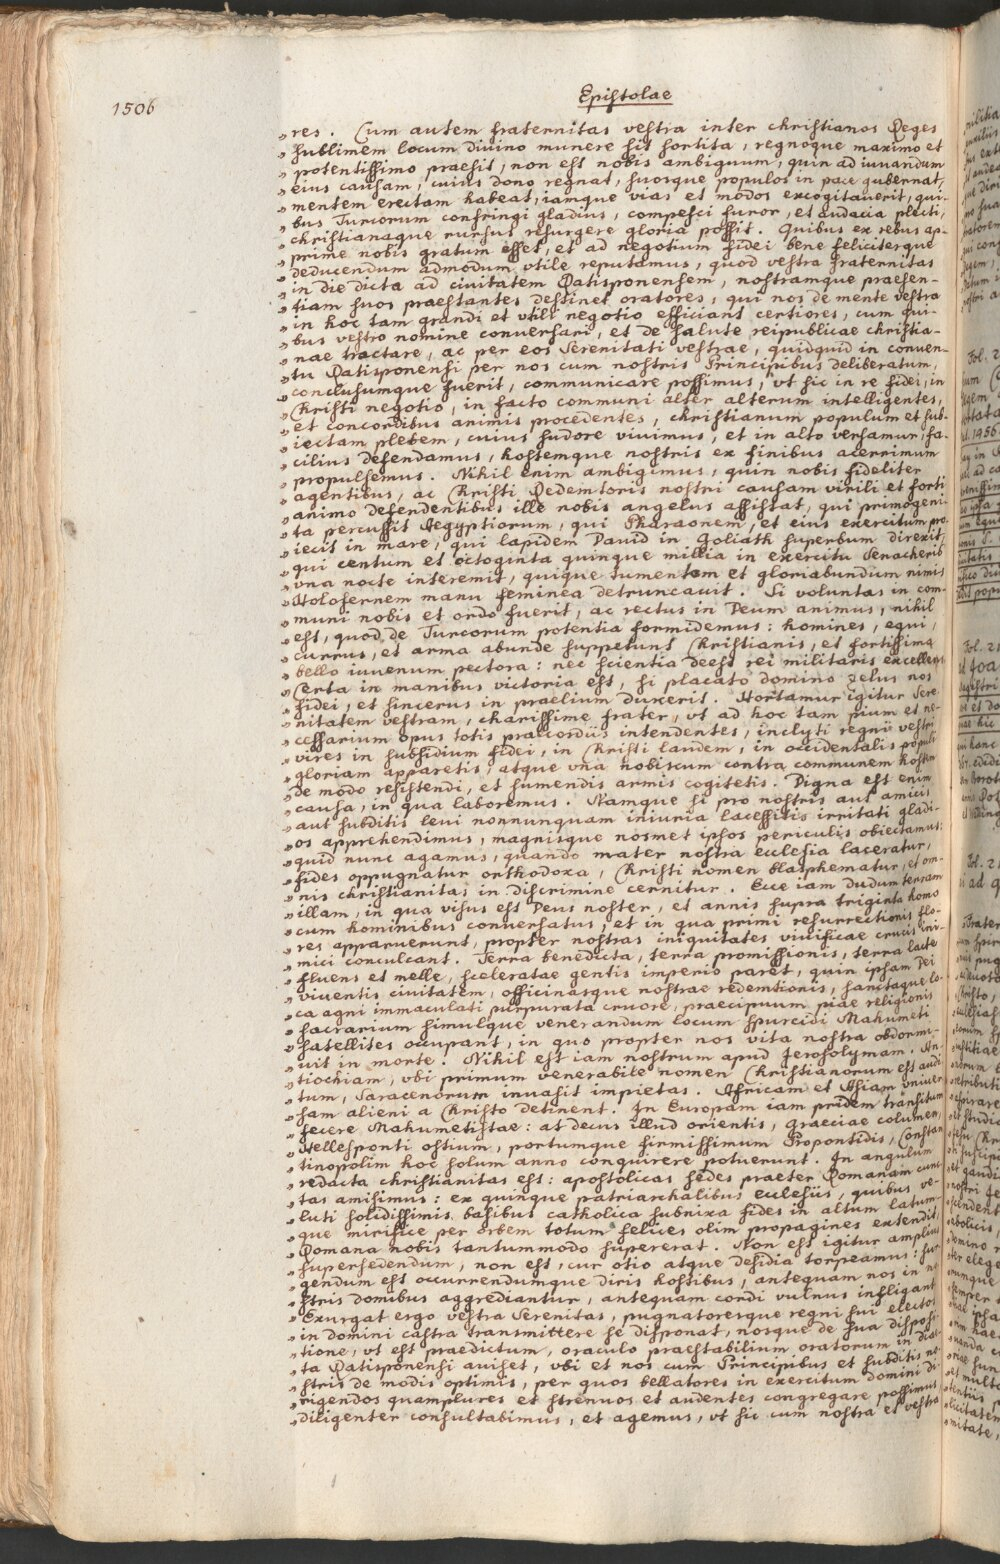 1506
Epistolae
„res. Cum autem fraternitas vestra inter christianos Reges
„sublimem locum divino munere sit sortita, regnoque maximo et
„potentissimo praesit, non est nobis ambiguum, quin ad iuvandum
„eius causam, cuius dono regnat, suosque populos in pace gubernat,
„mentem erectam habeat, iamque vias et modos excogitaverit, qui-
„bus Turcorum confringi gladius, compesci furor, et audacia plecti,
„christianaque rursus resurgere gloria possit. Quibus ex rebus ap-
„prime nobis gratum esset, et ad negotium fidei bene feliciterque
„deducendum admodum utile reputamus, quod vestra fraternitas
„in die dicta ad civitatem Ratisponensem, nostramque praesen-
„tiam suos praestantes destinet oratores, qui nos de mente vestra
„in hoc tam grandi et utili negotio efficiant certiores, cum qui-
„bus vestro nomine conversari, et de salute reipublicae christia-
„nae tractare, ac per eos Serenitati vestrae, quidquid in conven-
„tu Ratisponensi per nos cum nostris Principibus deliberatum,
„conclusumque fuerit, communicare possimus, ut sic in re fidei, in
„Christi negotio, in facto communi alter alterum intelligentes,
„et concordibus animis procedentes, christianum populum et sub-
„iectam plebem, cuius sudore vivimus, et in alto versamur, fa-
„cilius defendamus, hostemque nostris ex finibus acerrimum
„propulsemus. Nihil enim ambigimus, quin nobis fideliter
„agentibus, ac Christi Redemtoris nostri causam virili et forti
„animo defendentibus ille nobis angelus assistat, qui primogeni
„ta percussit Aegyptiorum, qui Pharaonem, et eius exercitum pro-
„iecit in mare, qui lapidem David in Goliath superbum direxit,
„qui centum et octoginta quinque millia in exercitu Senacherib
„una nocte interemit, quique tumentem et gloriabundum nimis
„Holofernem manu feminea detruncavit. Si voluntas in com-
„muni nobis et ordo fuerit, ac rectus in Deum animus, nihil
„est, quod de Turcorum potentia formidemus: homines, equi,
„currus, et arma abunde suppetunt Christianis, et fortissima
„bello iuvenum pectora: nec scientia deest rei militaris excellens
„Certa in manibus victoria est, si placato domino zelus nos
„fidei, et sincerus in praelium duxerit. Hortamur igitur Sere
„nitatem vestram, charissime frater, ut ad hoc tam pium et ne-
„cessarium opus totis praecordiis intendentes, inclyti regni vestri
„vires in subsidium fidei, in Christi laudem, in occidentalis populi
„gloriam apparetis, atque una nobiscum contra communem hostem
„de modo resistendi, et sumendis armis cogitetis. Digna est enim
„causa, in qua laboremus. Namque si pro nostris aut amicis
„aut subditis levi nonnunquam iniuria lacessitis irritati gladi-
„os apprehendimus, magnisque nosmet ipsos periculis obiectamus:
„quid nunc agamus, quando mater nostra ecclesia laceratur,
„fides oppugnatur orthodoxa, Christi nomen blasphematur, et om-
„nis christianitas in discrimine cernitur. Ecce iam dudum terram
„illam, in qua visus est Deus noster, et annis supra triginta homo
„cum hominibus conversatus, et in qua primi resurrectionis flo-
„res apparuerunt, propter nostras iniquitates vivificae crucis ini-
„mici conculcant. Terra benedicta, terra promissionis, terra lacte
„fluens et melle, sceleratae gentis imperio paret, quin ipsam Dei
„viventis civitatem, officinasque nostrae redemtionis, sanctaque lo-
„ca agni immaculati purpurata cruore, praecipuum piae religionis
„sacrarium simulque venerandum locum spurcidi Mahumeti
„satellites occupant, in quo propter nos vita nostra obdormi-
„vit in morte. Nihil est iam nostrum apud Jerosolymam. An-
„tiochiam, ubi primum venerabile nomen Christianorum est audi
„tum, Saracenorum invasit impietas. Africam et Asiam univer
„sam alieni a Christo detinent. In Europam iam pridem transitum
„fecere Mahumetistae: at decus illud orientis, Graeciae columen,
„Hellesponti ostium, portumque firmissimum Propontidis, Constan
„tinopolim hoc solum anno conquirere potuerunt. In angulum
„redacta christianitas est: apostolicas sedes praeter Romanam cunc
„tas amisimus: ex quinque patriarchalibus ecclesiis, quibus ve-
„luti solidissimis basibus catholica subnixa fides in altum latum-
„que mirifice per orbem totum felices olim propagines extendit,
„Romana nobis tantummodo supererat. Non est igitur amplius
„supersedendum, non est, cur otio atque desidia torpeamus: sur
„gendum est occurrendumque diris hostibus, antequam nos in no
„stris domibus aggrediantur, antequam cordi vulnus infligant
„Exurgat ergo vestra Serenitas, pugnatoresque regni sui electos
„in domini castra transmittere se disponat, nosque de sua disposi
„tione, ut est praedictum, oraculo praestabilium oratorum in diae
„ta Ratisponensi aviset, ubi et nos cum Principibus et subditis no
„stris de modis optimis, per quos bellatores in exercitum domini di
„rigendos quamplures et strenuos et audentes congregare possimus
„diligenter consultabimus, et agemus, ut sic cum nostra et vestra